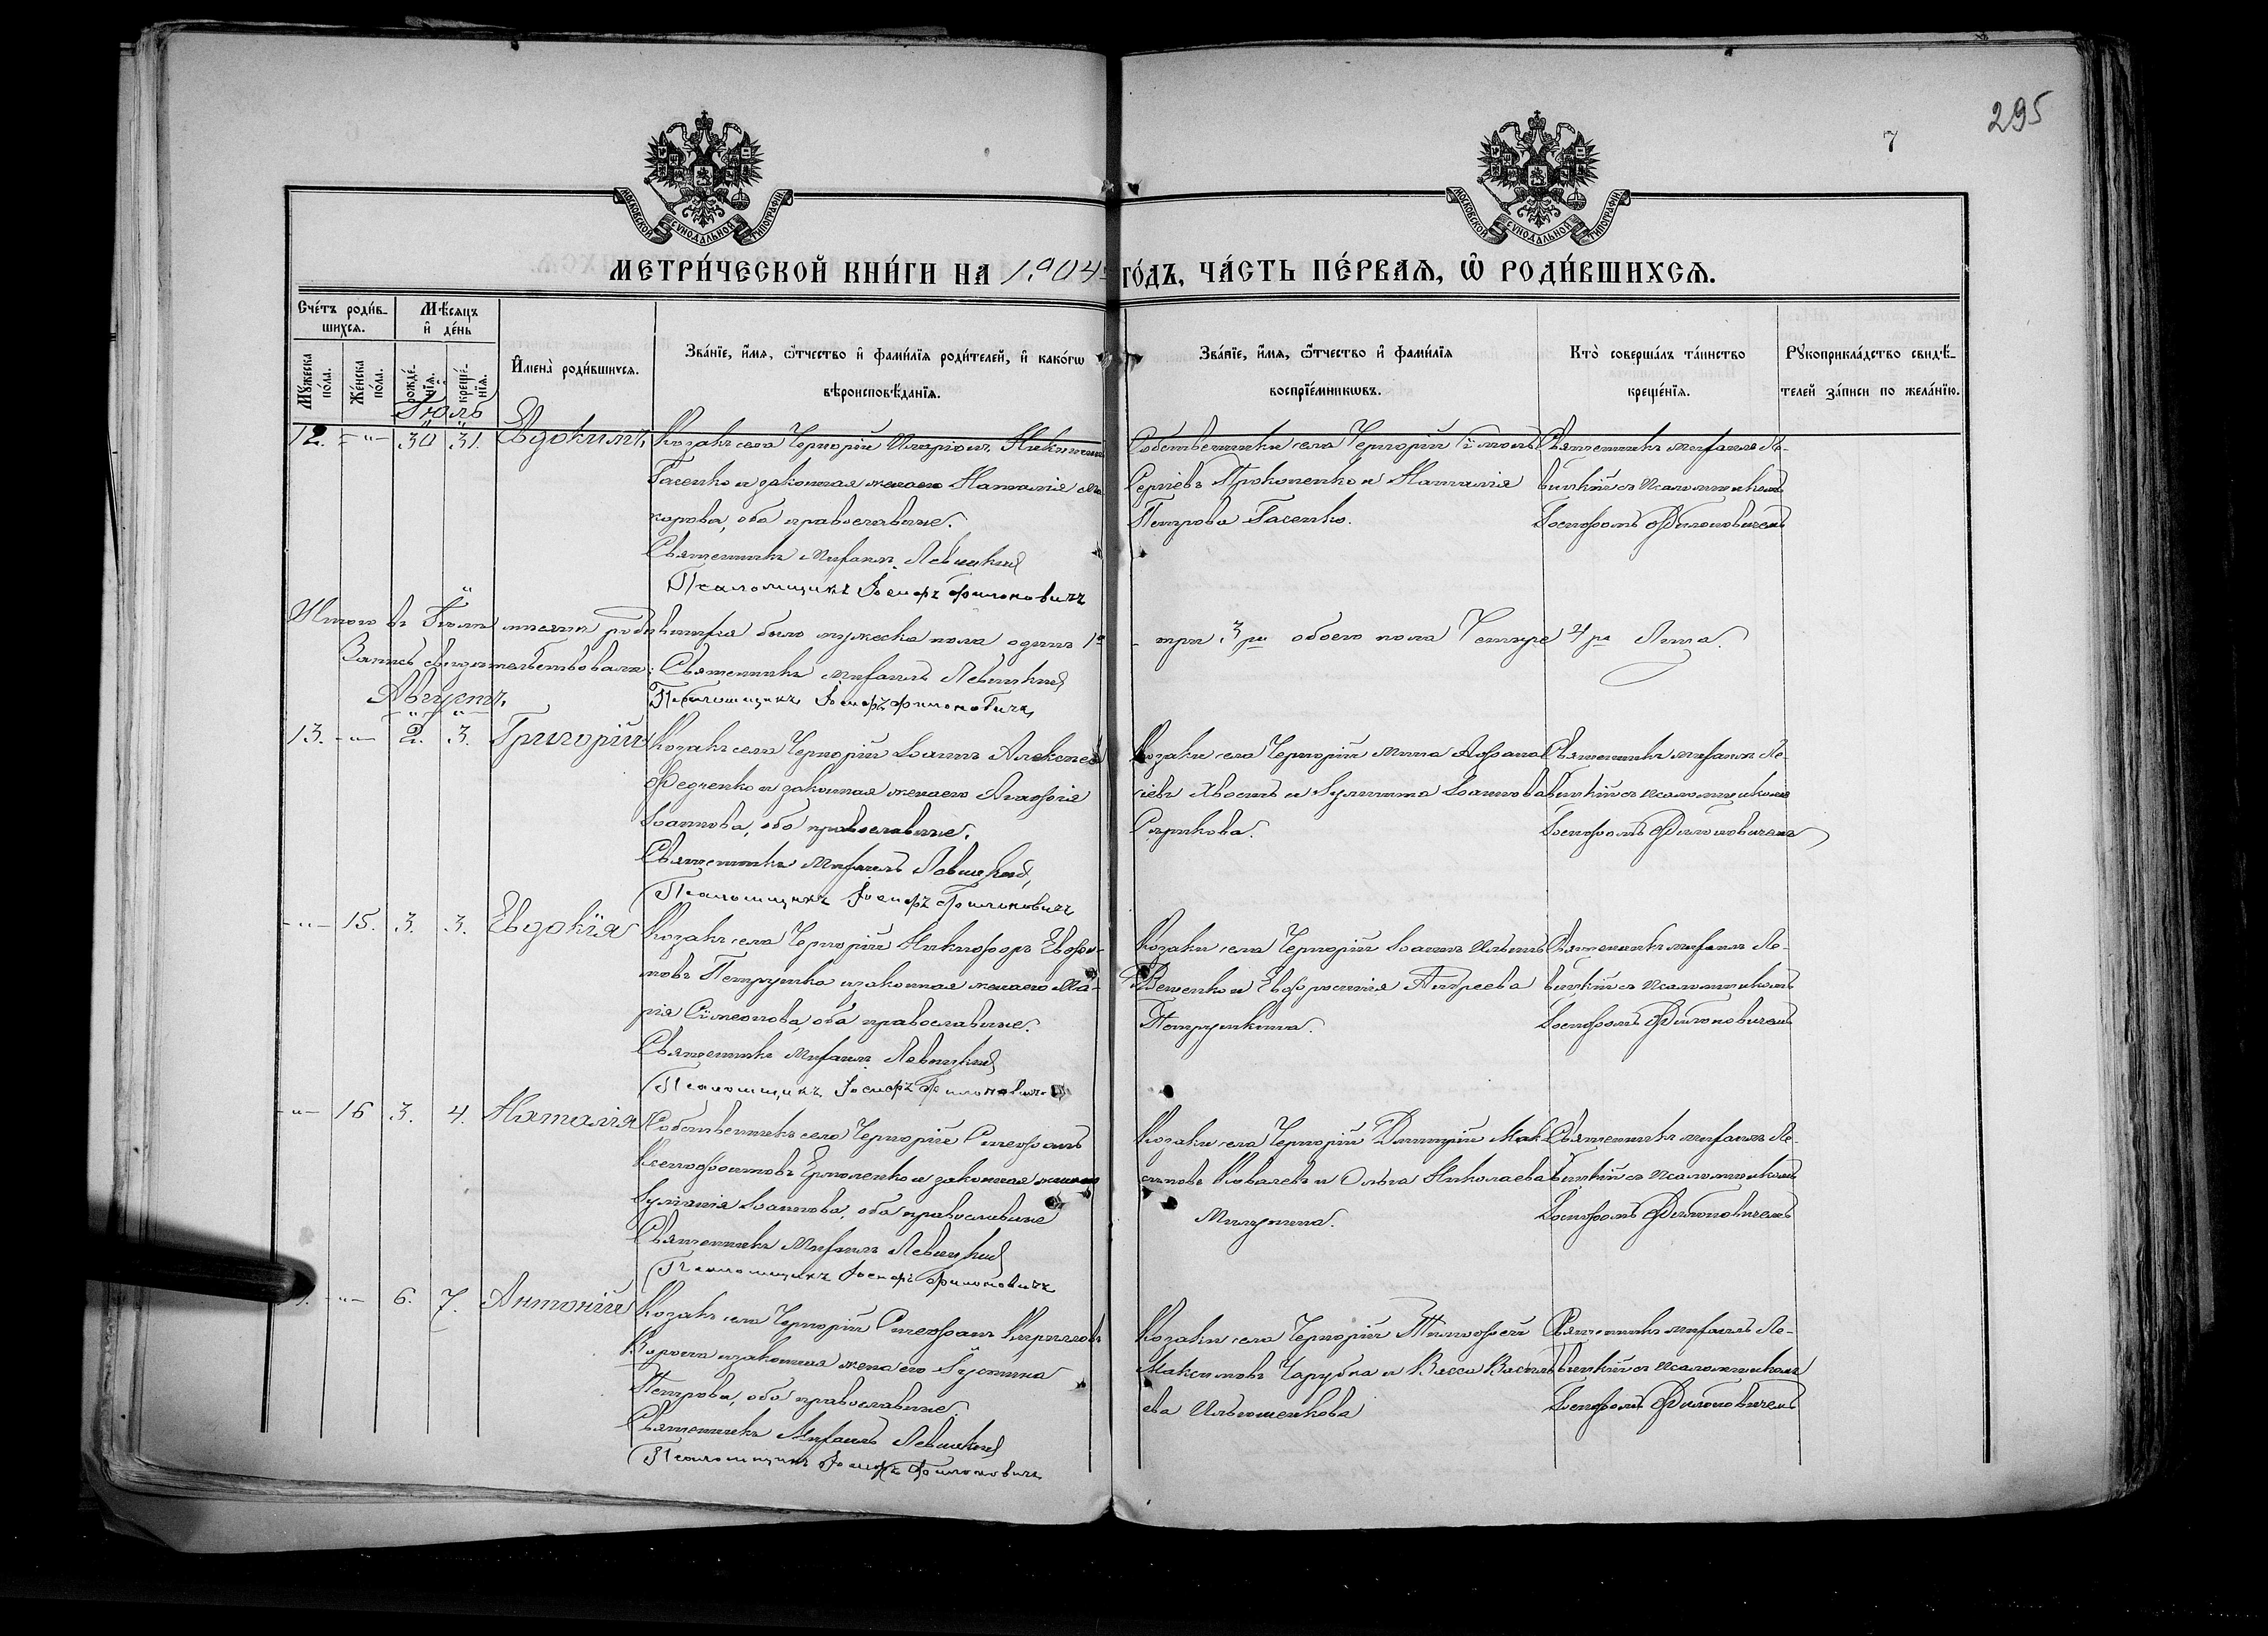 295
7
МОСКОВСКОЙ СѴНОДАЛЬНОЙ ТИПОГРАФІИ
МОСКОВСКОЙ СѴНОДАЛЬНОЙ ТИПОГРАФІИ
МЕТРИ́ЧЕСКОЙ КНИ́ГИ НА 1904 ГО́ДЪ, ЧА́СТЬ ПЕ́РВАѦ, Ѡ РОДИ́ВШИХСѦ.
Сче́тъ роди́в-
шихсѧ.
Мѣсѧцъ
и де́нь
Мꙋжеска
по́ла.
Же́нска
по́ла.
рожде́-
нїѧ.
креще́-
нїѧ.
Имена̀ роди́вшихсѧ.
Зва́нїе, и́мѧ, ѻ́тчество и фами́лїѧ роди́телей, и како́гѡ
вѣроисповѣ́данїѧ.
Зва́нїе, и́мѧ, ѻ́тчество и фами́лїѧ
воспрїе́мникѡвъ.
Кто̀ соверша́лъ та́инство
креще́нїѧ.
Рꙋкоприкла́дство свидѣ́-
телей за́писи по жела́нїю.
Іюль
12. - " - 30 31. Евдокимъ
Козакъ села Черногій Иларіонъ Никитинъ
Гасенко и законная жена его Наталія Ма-
карова, оба православные.
Священникъ Михаилъ Левицкій
Псаломщикъ Іосифъ Филоновичъ
Собственники села Черногій Симонъ
Сергіевъ Прокопенко и Наталія
Петрова Гасенко.
Священникъ Михаилъ Ле-
вицкій съ псаломщикомъ
Іосифомъ Филоновичемъ
Итого въ Іюлѣ мѣсяцѣ родившихся было мужеска пола одинъ 1
- три 3 обоего пола Четыре 4 Лица.
Запись свидѣтельствовали: Священникъ Михаилъ Левицкій
Псаломщикъ Іосифъ Филоновичъ
Августъ.
13. - " - 2. 3. Григорій
Козакъ села Черногій Іоаннъ Алексѣевъ
Федченко и законная жена его Агафія
Іоаннова, оба православные.
Священникъ Михаилъ Левицкій
Псаломщикъ Іосифъ Филоновичъ
Козаки села Черногій Мина Афанас-
іевъ Хвостъ и Іулитта Іоаннова
Священникъ Михаилъ Ле-
вицкій съ псаломщикомъ
Іосифомъ Филоновичемъ
- " - 15. 3. 3. Евдокія
Козакъ села Черногій Никифоръ Евфи-
мовъ Петрушка и законная жена его Ма-
рія Симеонова, оба православные.
Священникъ Михаилъ Левицкій
Псаломщикъ Іосифъ Филоновичъ
Козаки села Черногій Іоаннъ Ильинъ
и Евфросинія Андреева
Петрушкина.
Священникъ Михаилъ Ле-
вицкій съ псаломщикомъ
Іосифомъ Филоновичемъ
- " - 16 3. 4. Наталія
Собственникъ села Черногій Стефанъ
Ксенофонтовъ Ермоленко и законная жена его
Іуліанія Іоаннова, оба православные
Священникъ Михаилъ Левицкій
Псаломщикъ Іосифъ Филоновичъ
Козаки села Черногій Димитрій Мак-
симовъ Ковалевъ и Ольга Николаева
Священникъ Михаилъ Ле-
вицкій съ псаломщикомъ
Іосифомъ Филоновичемъ
- " - 6. 7. Антоній
Козакъ села Черногій Стефанъ Кирилловъ
и законная жена его Іустина
Петрова, оба православные.
Священникъ Михаилъ Левицкій
Псаломщикъ Іосифъ Филоновичъ
Козаки села Черногій Тимофей
Максимовъ и Васса Василь-
ева Ильюшенкова
Священникъ Михаилъ Ле-
вицкій съ псаломщикомъ
Іосифомъ Филоновичемъ